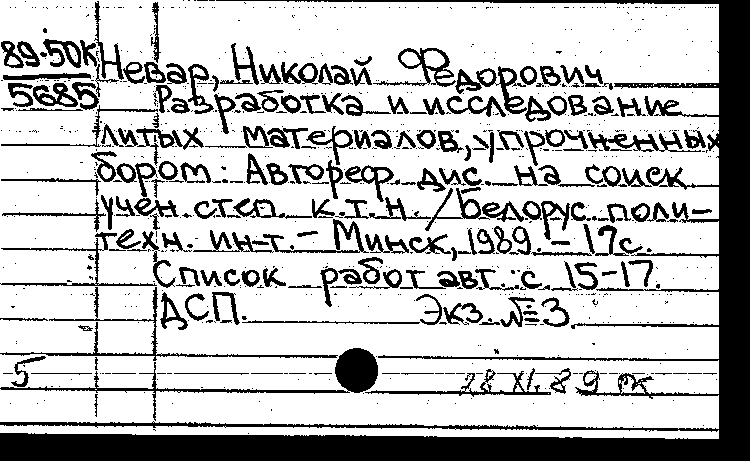 89-50К
5685
Невар, Николай Федорович.
Разработка и исследование
литых материалов, упрочненных
бором: Автореф. дис. на соиск.
учен. степ. к.т.н. / Белорус. поли-
техн. ин-т. - Минск, 1989. - 17с.
Список работ авт.: с. 15-17.
ДСП. Экз. №3.
5
28.XI.89 ок